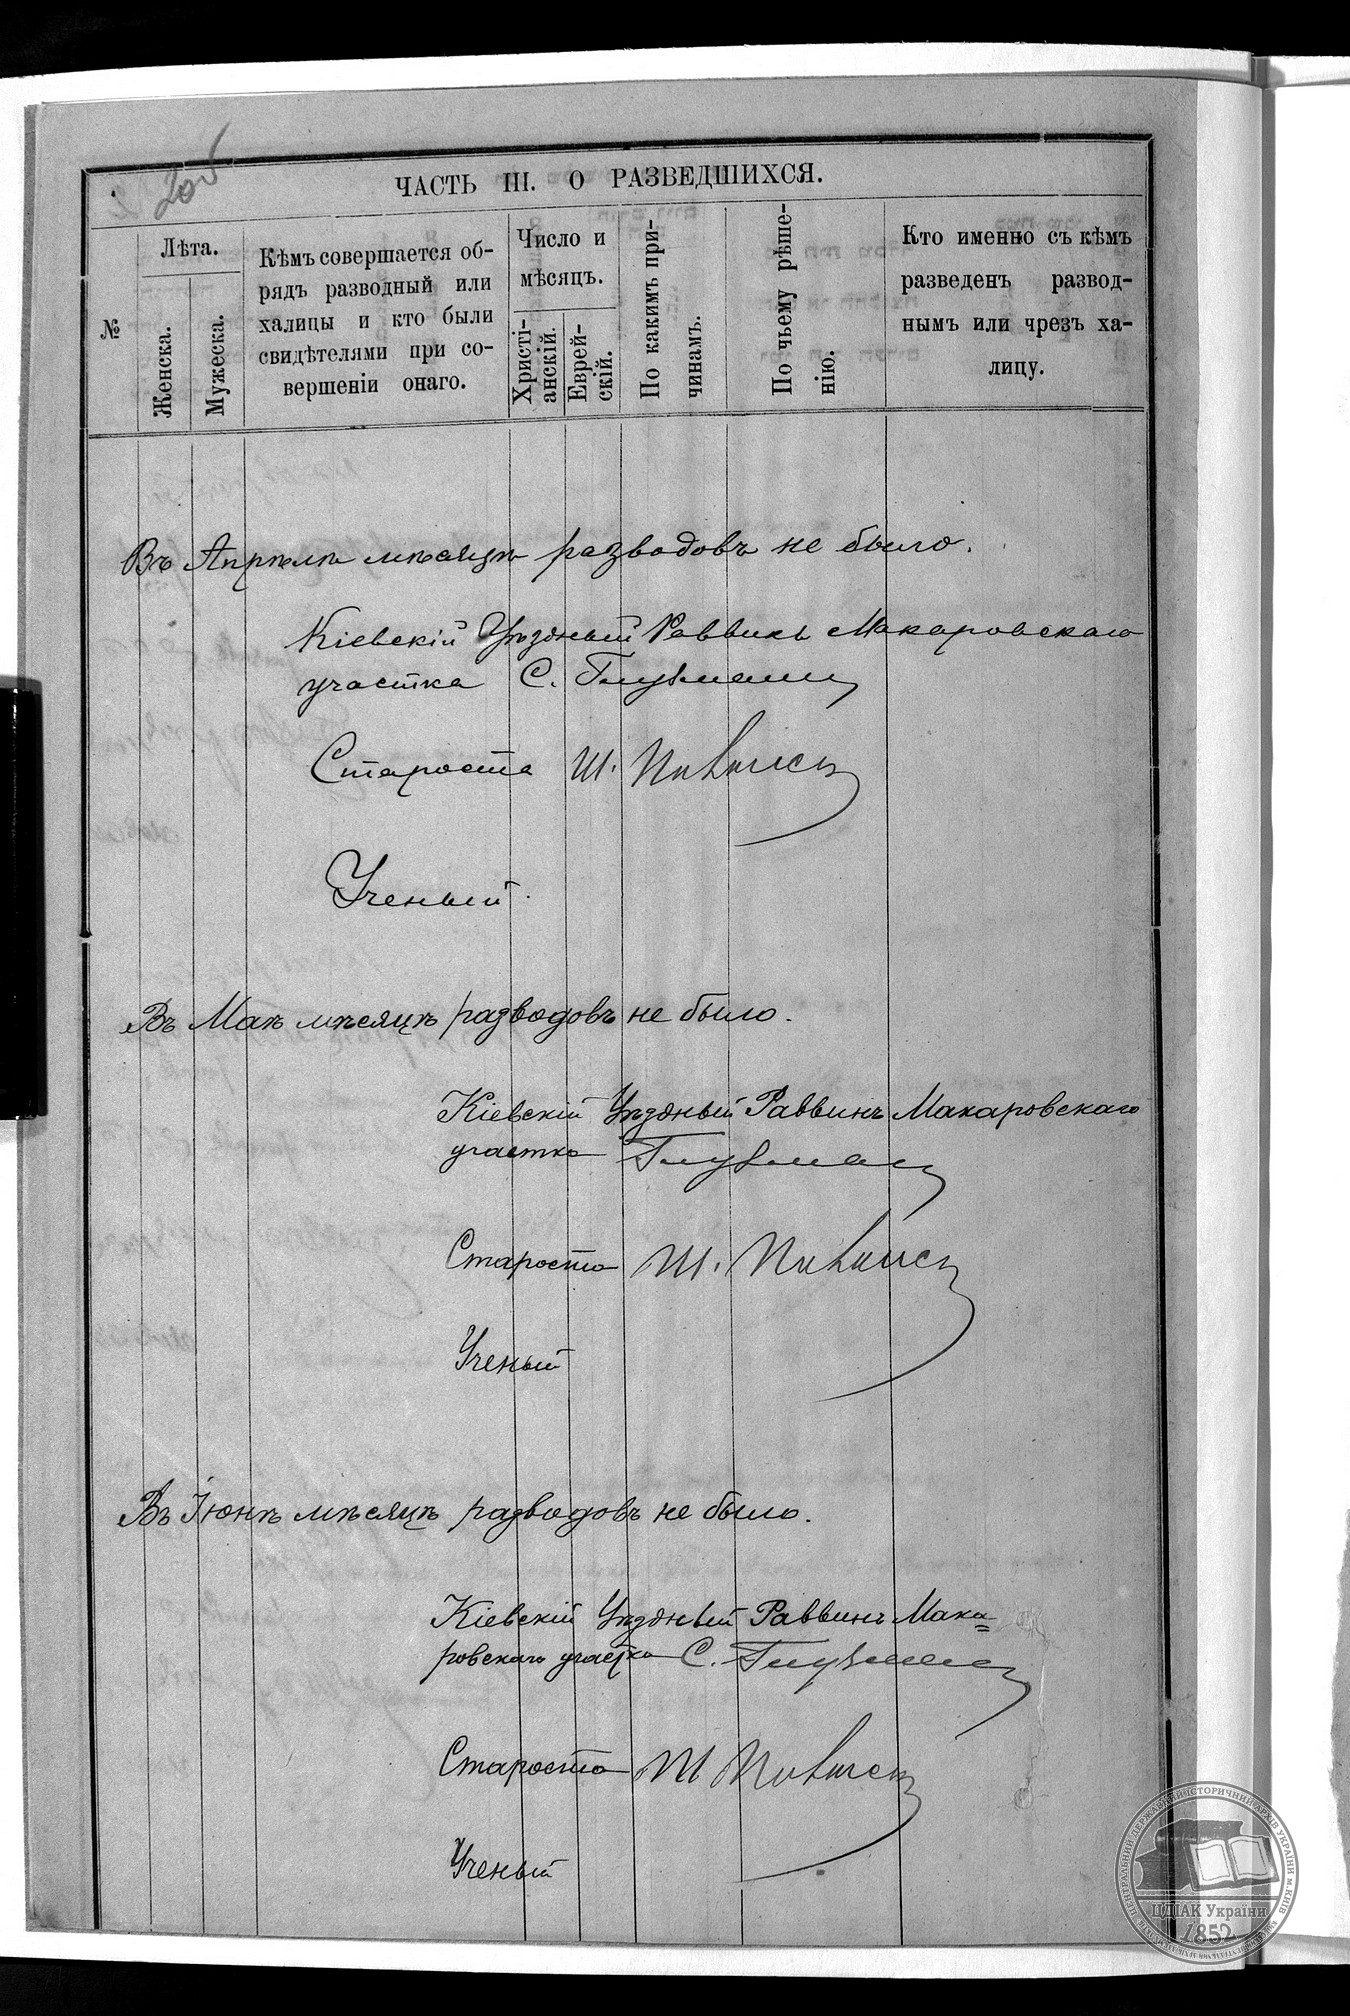 ЧАСТЬ III. О РАЗВЕДШИХСЯ.
№
Лѣта.
Женска.
Мужеска.
Кѣмъ совершается об-
рядъ разводный или
халицы и кто были
свидѣтелями при со-
вершеніи онаго.
Число и
мѣсяцъ.
Христі-
анскій.
Еврей-
скій.
По какимъ при-
чинамъ.
По чьему рѣше-
нію.
Кто именно съ кѣмъ
разведенъ развод-
нымъ или чрезъ ха-
лицу.
Въ Апрѣлѣ мѣсяцѣ разводовъ не было.
Кіевскій Уѣздный Раввинъ Макаровскаго
участка С. Глузманъ
Староста Ш.
Ученый
Въ Маѣ мѣсяцѣ разводовъ не было.
Кіевскій Уѣздный Раввинъ Макаровскаго
участка Глузманъ
Староста Ш.
Ученый
Въ Іюнѣ мѣсяцѣ разводовъ не было.
Кіевскій Уѣздный Раввинъ Мака=
ровскаго участка С. Глузманъ
Староста Ш
Ученый
ЦЕНТРАЛЬНИЙ ДЕРЖАВНИЙ ІСТОРИЧНИЙ АРХІВ УКРАЇНИ м.КИЇВ
ЦДІАК України
1852